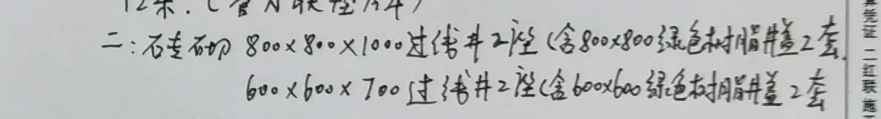 12米.(含
二:砖砌 800×800×1000过线井2座(含800×800绿色树脂井盖2套.
600×600×700过线井2座(含600×600绿色树脂井盖2套
凭证 二红联 施